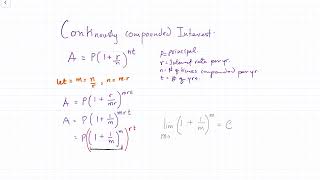 Continously compounded Interest.
A = P(1 + r/n)^nt
P = Principal.
r = Interest rate per yr.
n = # of times compounded per yr.
t = # of yrs.
let = m = n/r , n = mr
A = P(1 + r/mr)^mrt
A = P(1 + 1/m)^mrt
= P((1 + 1/m)^m)^rt
lim m→∞ (1 + 1/m)^m = e